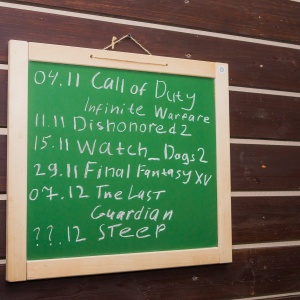 04.11 Call of Duty
Infinite Warfare
11.11 Dishonored 2
15.11 Watch_Dogs 2
29.11 Final Fantasy XV
07.12 The Last
Guardian
??.12 Steep